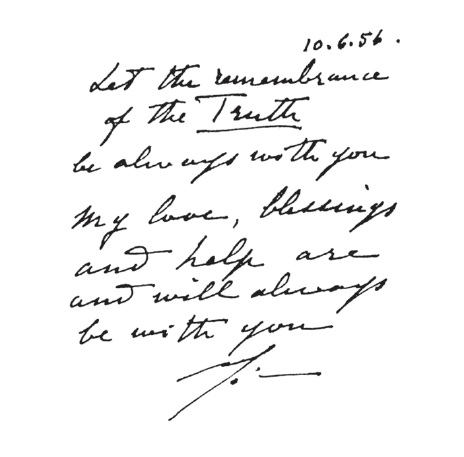 10.6.56.
Let the remembrance
of the Truth
be always with you
My love, blessings
and help are
and will always
be with you